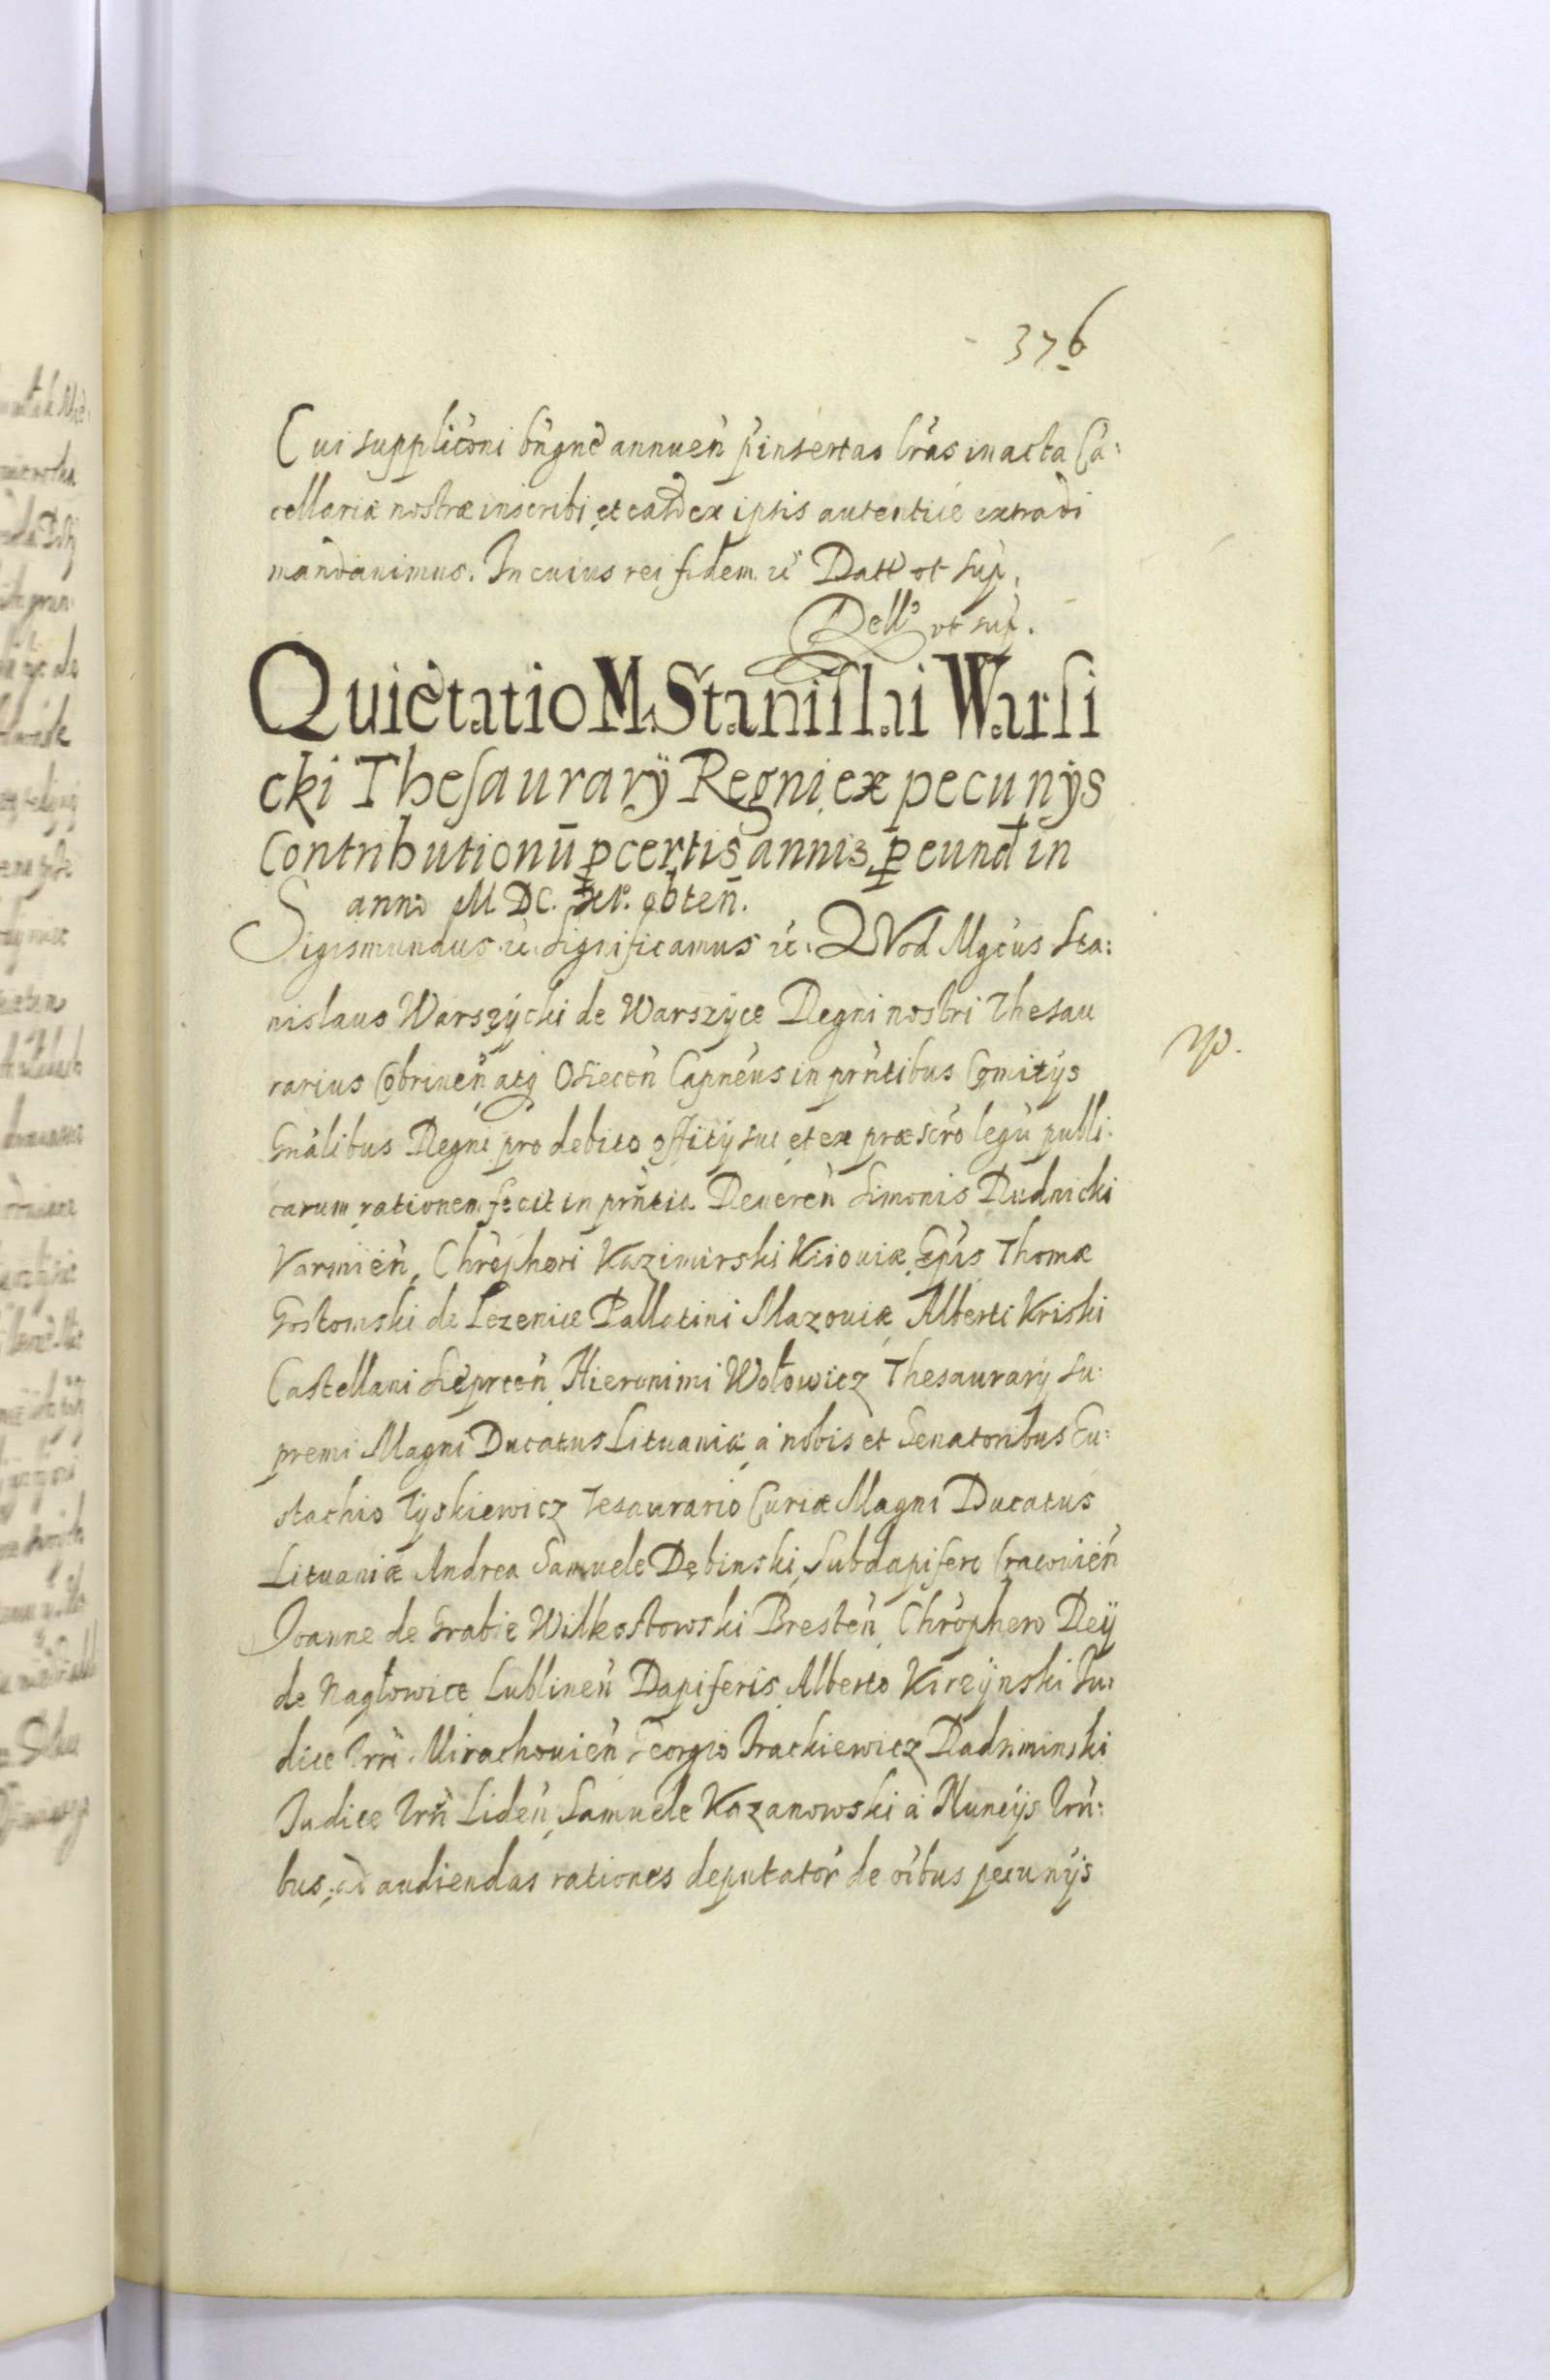 376
Cui supplicõni bñgnè annueñ p̃insertas lr̃as in acta Cã:
cellariæ nostræ inscribi et easd̃ ex ipsis autenticè extradi
mandauimus. In cuius rei fidem. &c̃ Datt̃ vt sup̃.
Rell: vt sup̃.
Quiètatio M. Stanislai Warsi
cki Thesaurarÿ Regni ex pecunÿs
Contributionū p̱ certis annis p̱ eund̃ in
anno M DC. obteñ.
Sigismundus &c. Significamus &c. QVod Mgc̃us Sta:
nislaus Warszÿcki de Warszÿce Regni nostri Thesau
rarius Cobrineñ atq̃ Osieceñ Capñeus in pr̃ntibus Comitÿs
Gñalibus Regni pro debito offitÿ sui et ex præscr̃o legũ publi:
carum rationem fecit in pr̃ntia Reuereñ Simonis Rudnicki
Varmieñ, Chr̃ophori Kazimirski Kiiouiæ Ep̃is Thomæ
Gostomski de Lezenice Pallatini Mazouiæ Alberti Kriski
Castellani Sieprceñ Hieronimi Wołowicz Thesaurarÿ Su:
premi Magni Ducatus Lituaniæ à nobis et Senatoribus Eu:
stachio Tyskiewicz Tesaurario Curiæ Magni Ducatus
Lituaniæ Andrea Samuele Dębinski Subdapifero Cracouieñ
Joanne de Grabie Wilkostowski Bresteñ Chr̃ophero Reÿ
de Nagłowice Lublineñ Dapiferis Alberto Kirzÿnski Ju:
dice Trr̃i Mirachouieñ Georgio Irackiewicz Radziminski
Judice Trr̃i Lideñ Samuele Kazanowski à Nuncÿs Trr̃:
bus ad audiendas rationes deputator̃ de oĩbus pecunÿs